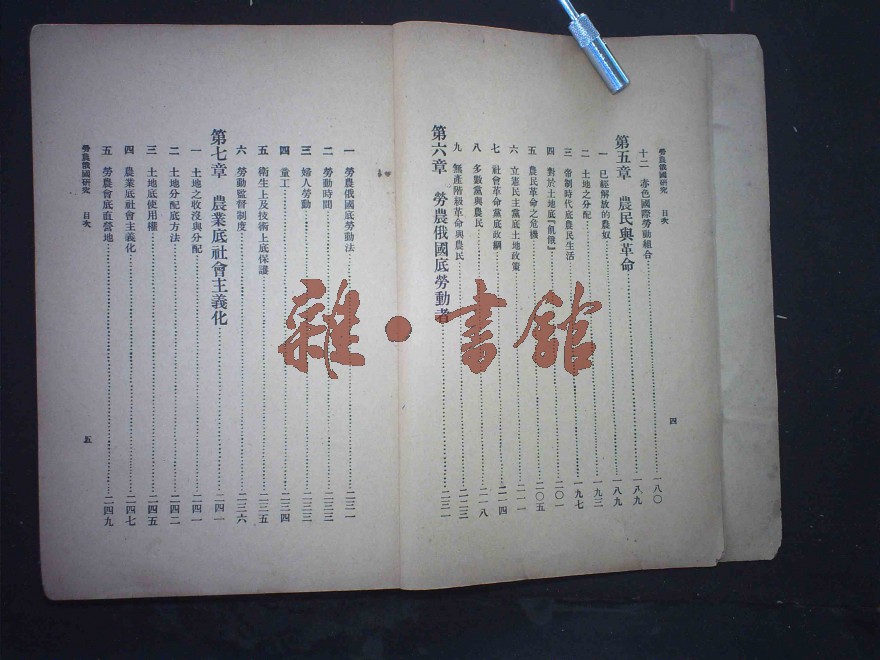 勞農俄國研究 目次
四
十二 赤色國際勞動組合 一八〇
第五章 農民與革命 一八九
一 已經解放的農奴 一八九
二 土地之分配 一九三
三 帝制時代底農民生活 一九七
四 對於土地底『飢餓』 二〇一
五 農民革命之危機 二〇五
六 立憲民主黨底土地政策 二一一
七 社會革命黨底政綱 二一四
八 多數黨與農民 二一八
九 無產階級革命與農民 二二三
第六章 勞農俄國底勞動者 二三一
一 勞農俄國底勞動法 二三一
二 勞動時間 二三三
三 婦人勞動 二三三
四 童工 二三四
五 衛生上及技術上底保護 二三五
六 勞動監督制度 二三六
第七章 農業底社會主義化 二四一
一 土地之收沒與分配 二四一
二 土地分配底方法 二四二
三 土地底使用權 二四五
四 農業底社會主義化 二四七
五 勞農會底直營地 二四九
勞農俄國研究 目次
五
雜·書館